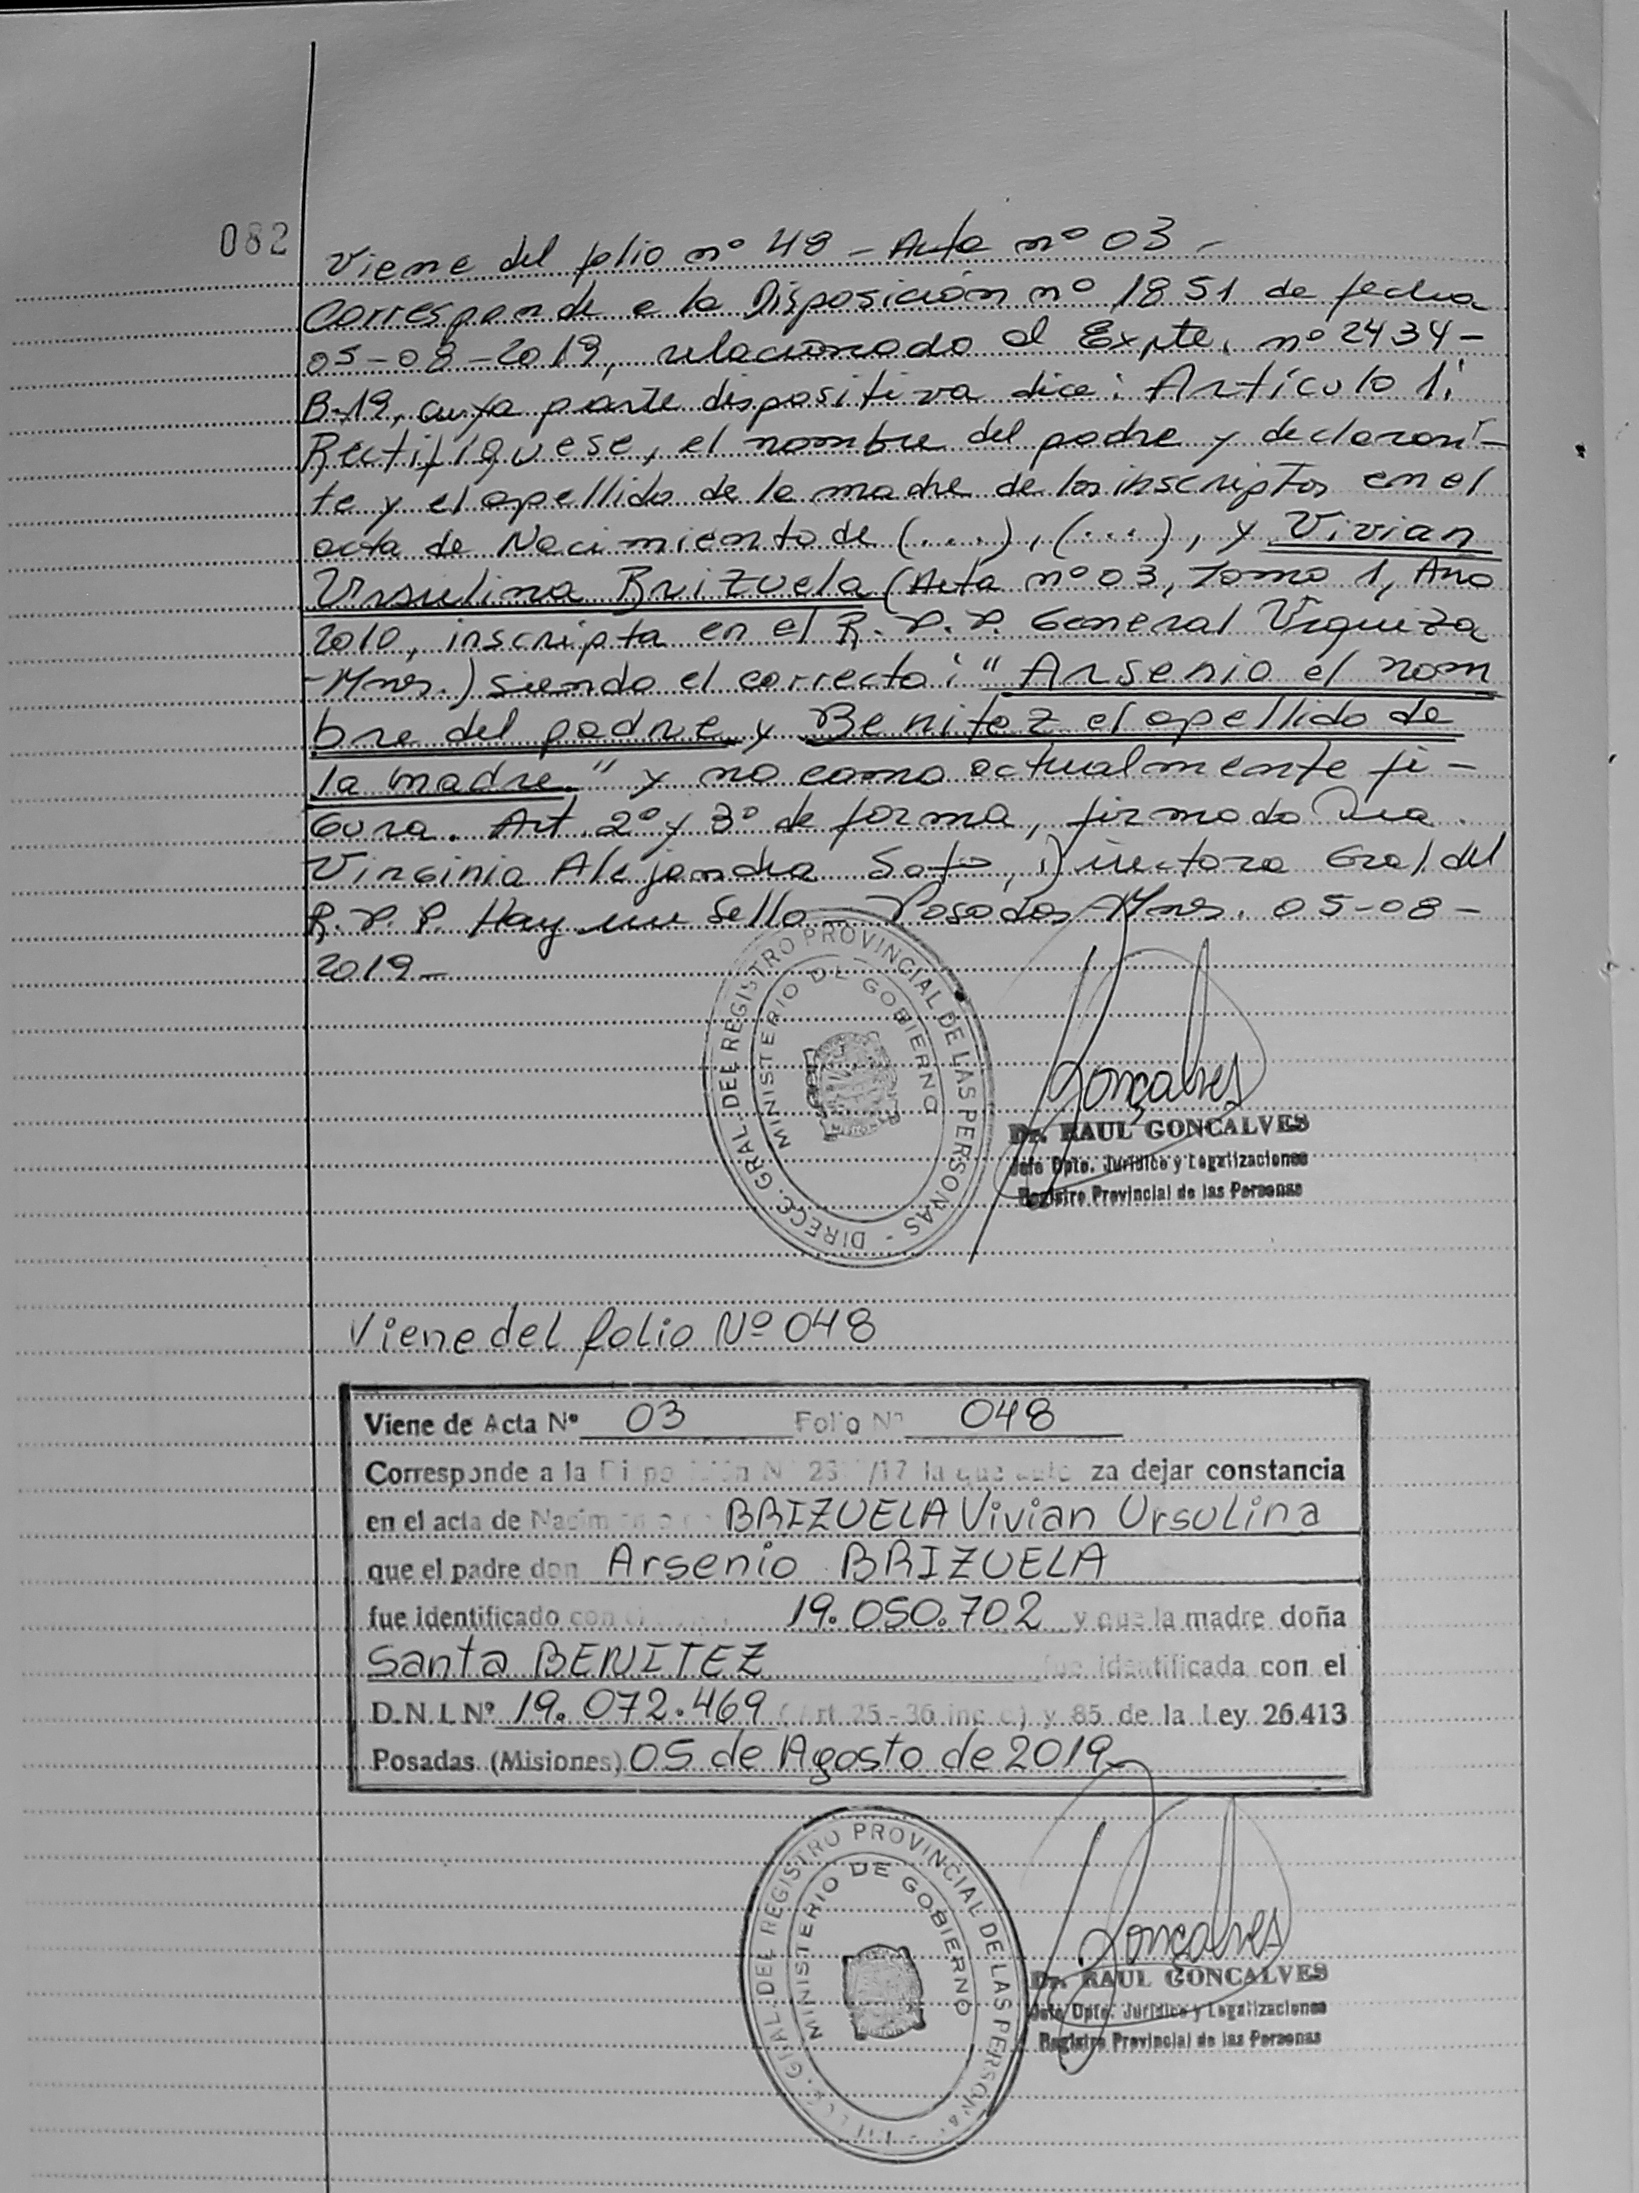 082
Viene del folio nº 48 - Acta nº 03 -
Corresponde a la Disposición nº 1851 de fecha
05-08-2019, relacionado al Expte. nº 2434-
B-19, cuya parte dispositiva dice: Artículo 1:
Rectifíquese, el nombre del padre y declaran-
te y el apellido de la madre de los inscriptos en el
acta de Nacimiento de (....), (....), y Vivian
Ursulina Brizuela (Acta nº 03, Tomo 1, Año
2010, inscripta en el R.P.P. General Urquiza
-Mnes.) siendo el correcto: "Arsenio el nom
bre del padre y Benitez el apellido de
la madre." y no como actualmente fi-
gura. Art. 2º y 3º de forma, firmado
Virginia Alejandra Soto, Directora Gral. del
R.P.P. Hay un sello - Posadas, Mnes. 05-08-
2019-
DIRECC. GRAL. DEL REGISTRO PROVINCIAL DE LAS PERSONAS -
MINISTERIO DE GOBIERNO
Gonçalves
Dr. RAUL GONCALVES
Jefe Dpto. Jurídico y Legalizaciones
Registro Provincial de las Personas
Viene del folio Nº 048
Viene de Acta Nº 03 Folio Nº 048
Corresponde a la /17 la que za dejar constancia
en el acta de BRIZUELA Vivian Ursulina
que el padre don Arsenio BRIZUELA
fue identificado con 19.050.702 y que la madre doña
Santa BENITEZ fue identificada con el
D.N.I. Nº 19.072.469 (Art. 25 - 36 inc. c) y 85 de la Ley 26.413
Posadas (Misiones) 05 de Agosto de 2019-
GRAL. DEL REGISTRO PROVINCIAL DE LAS PERSONAS
MINISTERIO DE GOBIERNO
Gonçalves
Dr. RAUL GONCALVES
Jefe Dpto. Jurídico y Legalizaciones
Registro Provincial de las Personas